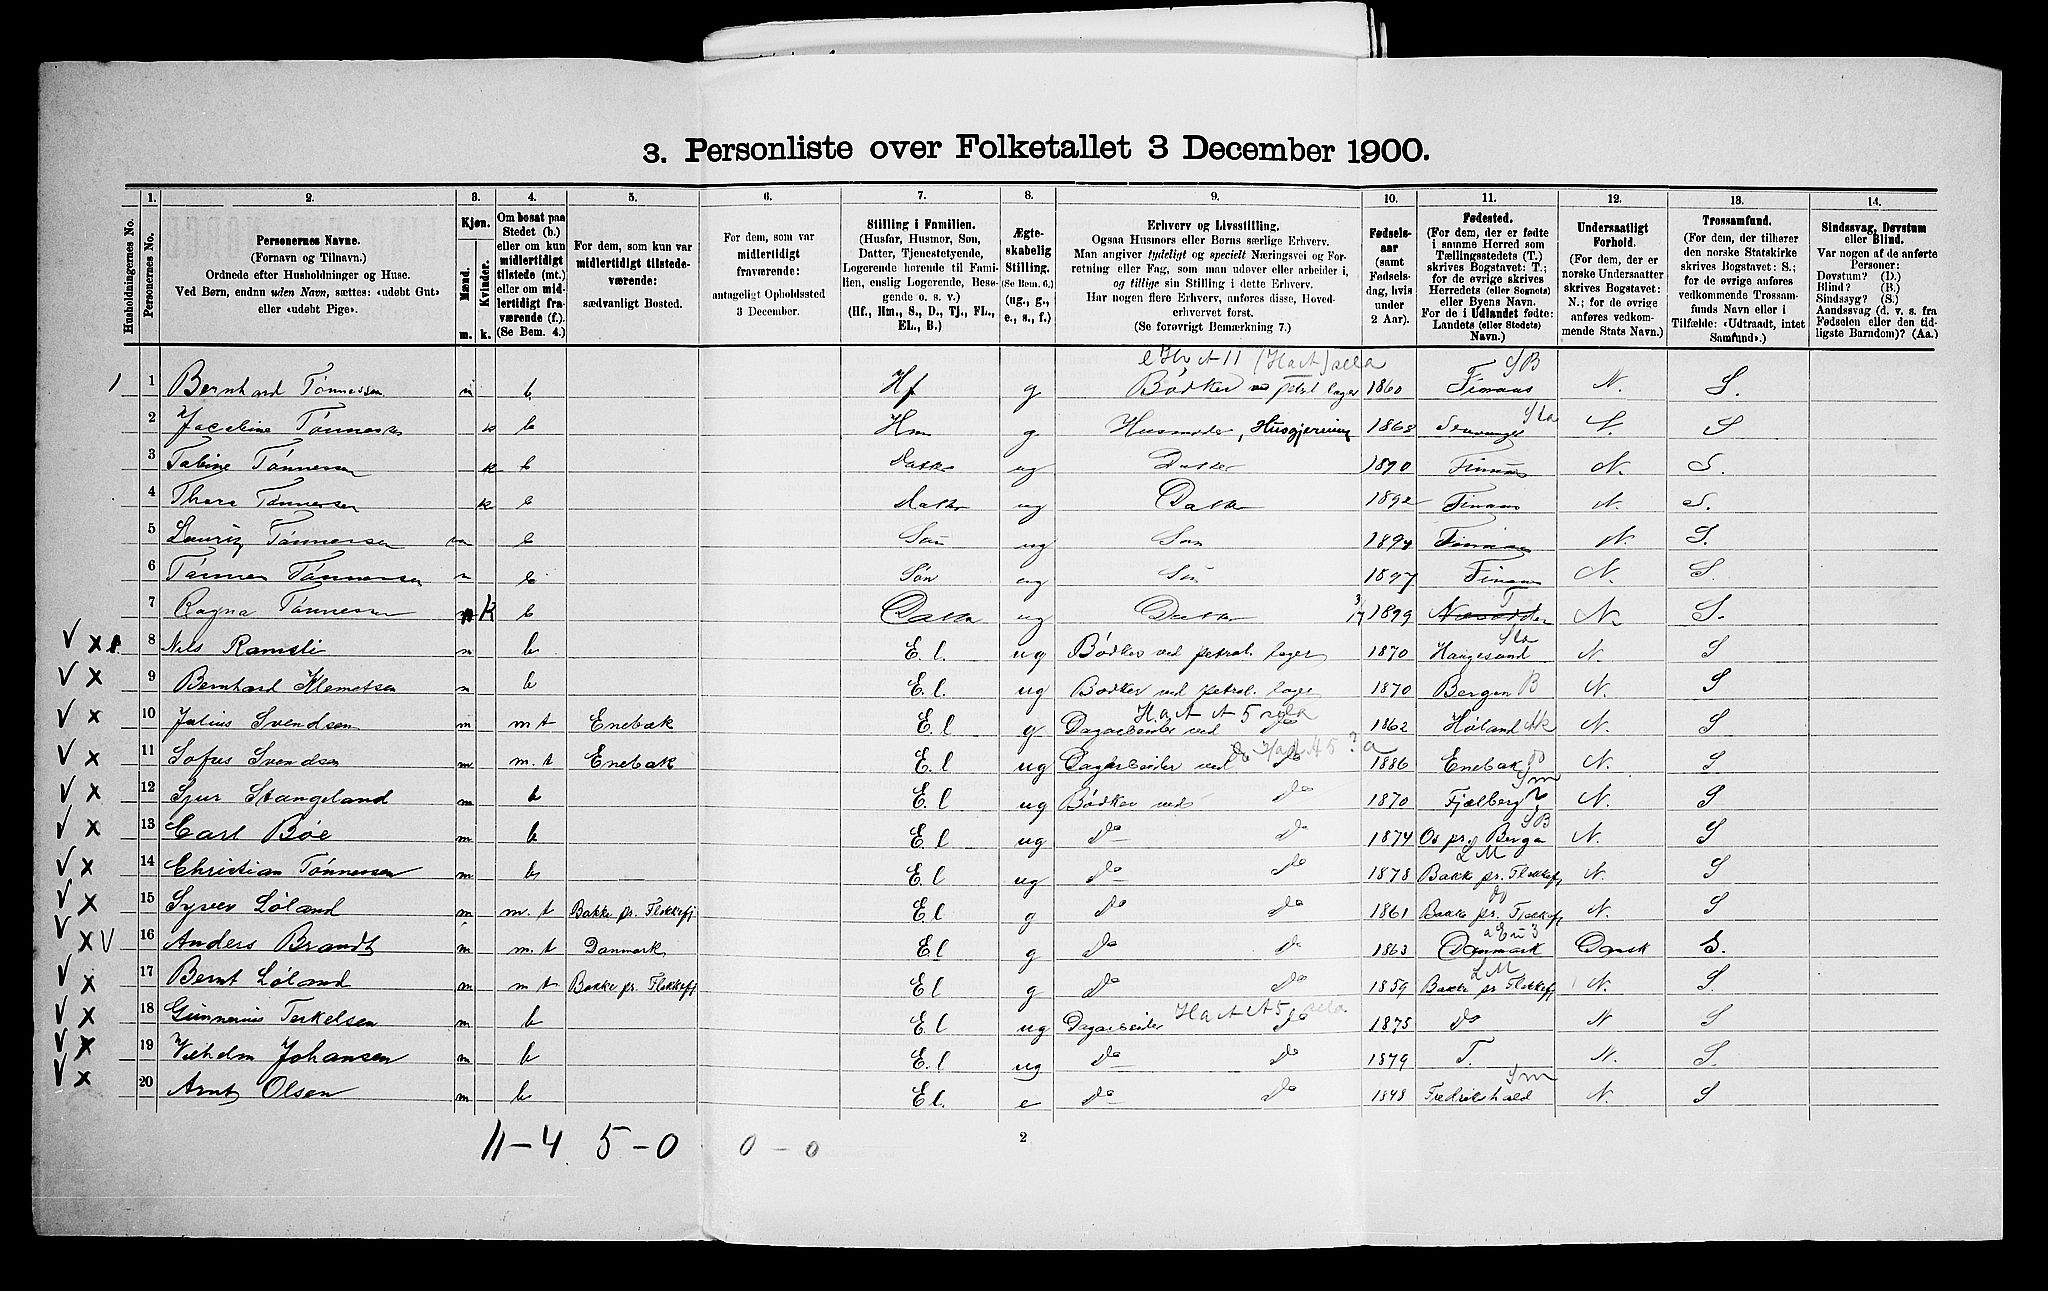 3. Personliste over Folketallet 3 December 1900.
Husholdningernes No.
1. Personernes No.
2. Personernes Navne.
(Fornavn og Tilnavn.)
Ordnede efter Husholdninger og Huse.
Ved Børn, endnu uden Navn, sættes: «udøbt Gut»
eller «udøbt Pige».
3. Kjøn.
Mænd. Kvinder.
m. k.
4. Om bosat paa
Stedet (b.)
eller om kun
midlertidigt
tilstede (mt.)
eller om mid-
lertidigt fra-
værende (f.).
(Se Bem. 4.)
5. For dem, som kun var
midlertidigt tilstede-
værende:
sædvanligt Bosted.
6. For dem, som var
midlertidigt
fraværende:
antageligt Opholdssted
3 December.
7. Stilling i Familien.
(Husfar, Husmor, Søn,
Datter, Tjenestetyende,
Logerende hørende til Fami-
lien, enslig Logerende, Besø-
gende o. s. v.)
(Hf., Hm., S., D., Tj., FL.,
EL., B.)
8. Ægte-
skabelig
Stilling.
(Se Bem. 6.)
(ug., g.,
e., s., f.)
9. Erhverv og Livsstilling.
Ogsaa Husmors eller Børns særlige Erhverv.
Man angiver tydeligt og specielt Næringsvei og For-
retning eller Fag, som man udøver eller arbeider i,
og tillige sin Stilling i dette Erhverv.
Har nogen flere Erhverv, anføres disse, Hoved-
erhvervet først.
(Se forøvrigt Bemærkning 7.)
10. Fødsels-
aar
(samt
Fødsels-
dag, hvis
under
2 Aar).
11. Fødested.
(For dem, der er fødte
i samme Herred som
Tællingsstedets (T.)
skrives Bogstavet: T.;
for de øvrige skrives
Herredets (eller Sognets)
eller Byens Navn.
For de i Udlandet fødte:
Landets (eller Stedets)
Navn.)
12. Undersaatligt
Forhold.
(For dem, der er
norske Undersaatter
skrives Bogstavet:
N.; for de øvrige
anføres vedkom-
mende Stats Navn.)
13. Trossamfund.
(For dem, der tilhører
den norske Statskirke
skrives Bogstavet: S.;
for de øvrige anføres
vedkommende Trossam-
funds Navn eller i
Tilfælde: «Udtraadt, intet
Samfund».)
14. Sindssvag, Døvstum
eller Blind.
Var nogen af de anførte
Personer:
Døvstum? (D.)
Blind? (B.)
Sindssyg? (S.)
Aandssvag (d. v. s. fra
Fødselen eller den tid-
ligste Barndom)? (Aa.)
1 1 Bernhard Tønnessen m b. Hf g Bødker ved petrol lager 1860 Finnaas SB N. S.
2 Jacobine Tønnessen k b Hm g Husmoder, Husgjerning 1868 Stavanger Sta N. S
3 Tabine Tønnessen k b Datter ug Datter 1890 Finnaas N. S.
4 Thora Tønnessen k b Datter ug Datter 1892 Finaas N. S.
5 Lauritz Tønnessen m b Søn ug Søn 1894 Finnaas N. S.
6 Tønnes Tønnessen m b Søn ug Søn 1897 Finaas N. S.
7 Ragna Tønnessen k b Datter ug Datter 1899 T N. S.
8 Nils Ramsli m b E. l. ug Bødker ved petrol. lager 1870 Haugesund Sta N. S
9 Bernhard Klemetsen m b E. l. ug Bødker ved petrol. lager 1870 Bergen B N. S
10 Julius Svendsen m m t Enebak E. l g Dagarbeider ved do 1862 Høland Ak N. S
11 Sofus Svendsen m m. t Enebak E. l ug Dagarbeider ved do 1886 Enebak do N. S
12 Sjur Stangeland m b E. l ug Bødker ved do 1870 Fjælberg N. S
13 Carl Bøe m b E. l ug do do 1874 Os pr. Bergen SB N. S
14 Christian Tønnessen m b E. l ug do do 1878 Bakke pr. Flekkefj LM N. S
15 Syver Løland m m. t Bakke pr. Flekkefj E l g do do 1861 Bakke pr. Flekkefj do N. S
16 Anders Brandt m m. t Danmark E l g do do 1863 Danmark Dansk S.
17 Bernt Løland m m t Bakke pr. Flekkefj E l g do do 1859 Bakke pr Flekkefj LM N. S.
18 Gunnerius Terkelsen m b E. l ug Dagarbeider do 1875 do N S
19 Vilhelm Johansen m b E. l ug do do 1879 T. N. S.
20 Arnt Olsen m b E l. e do do 1848 Fredrikshald Sm N. S
11-4 5-0 0-0
2